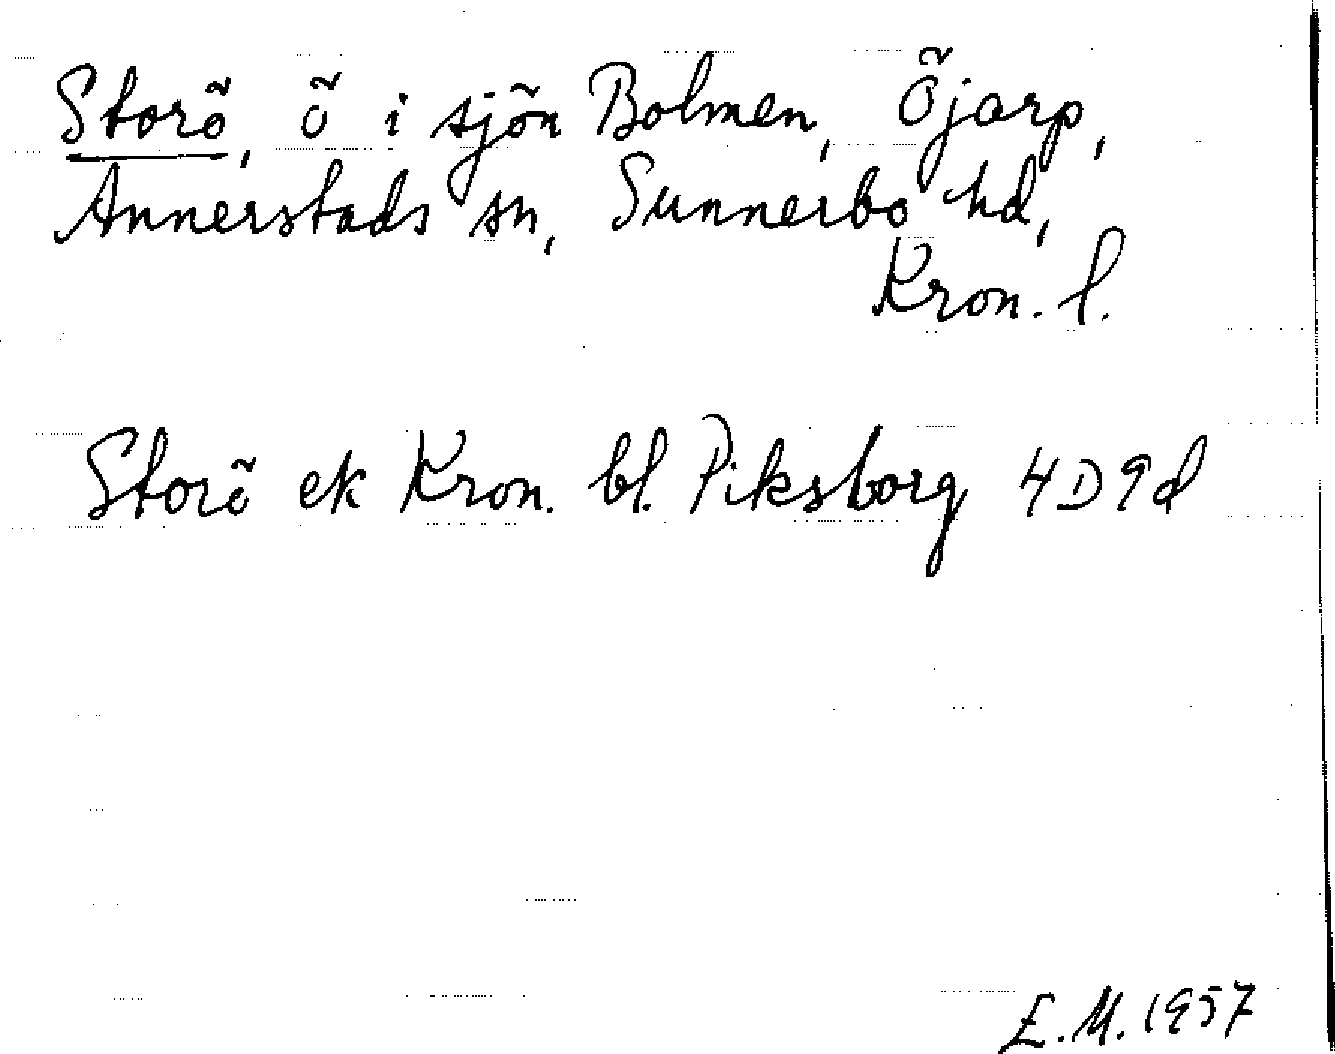 Storö, ö i sjön Bolmen, Öjarp,
Annerstads sn, Sunnerbo hd,
Kron. l.
Storö ek Kron. bl. Piksborg 4D9d
E.M. 1957